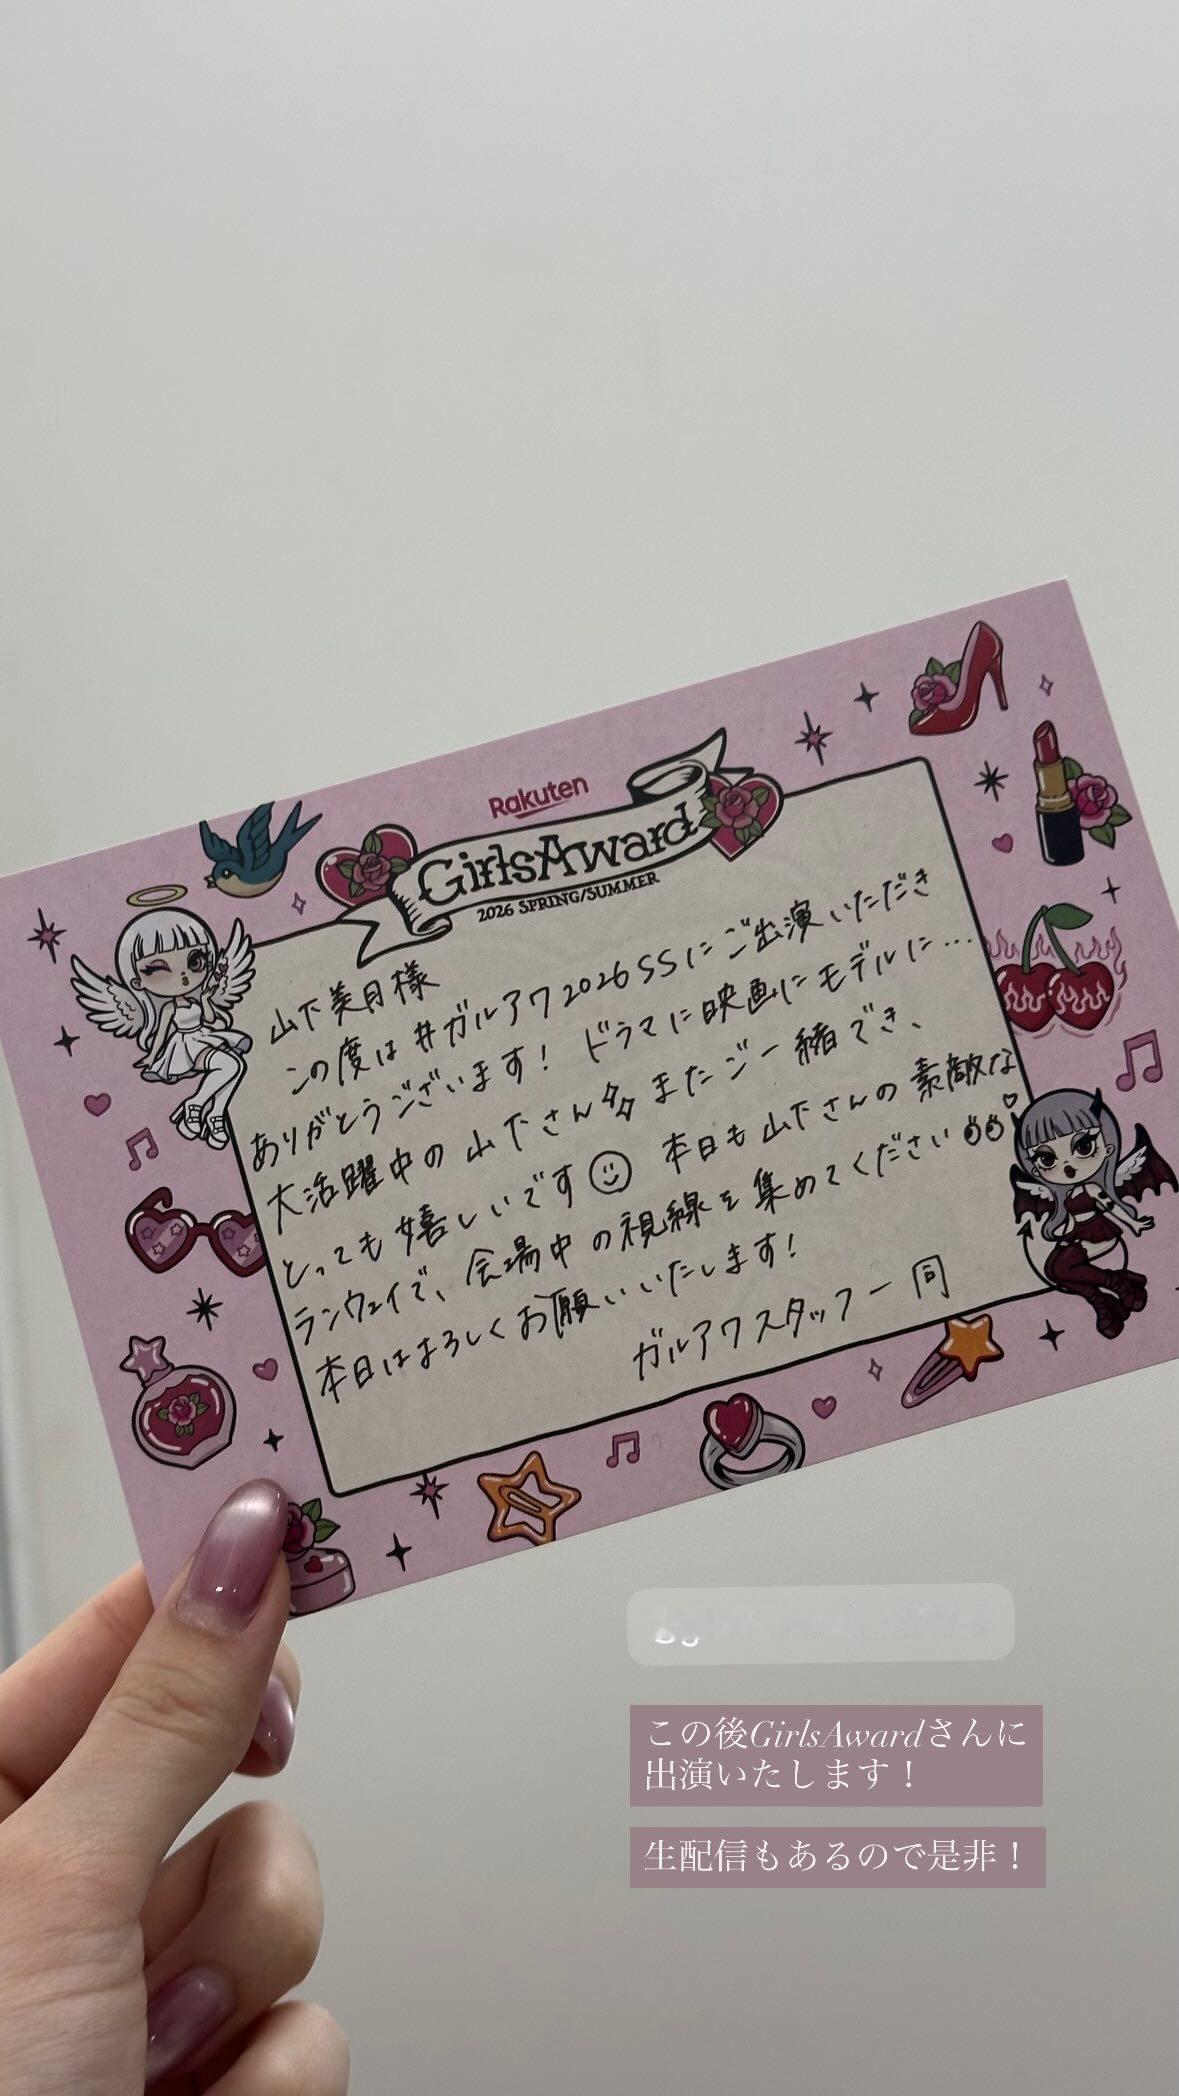 Rakuten
GirlsAward
2026 SPRING/SUMMER
山下美月様
この度は#ガルアワ2026SSにご出演いただき
ありがとうございます! ドラマに映画にモデルに…
大活躍中の山下さん またご一緒でき、
とっても嬉しいです 本日も山下さんの素敵な
ランウェイで、会場中の視線を集めてください
本日はよろしくお願いいたします!
ガルアワスタッフ一同
この後GirlsAwardさんに
出演いたします!
生配信もあるので是非!